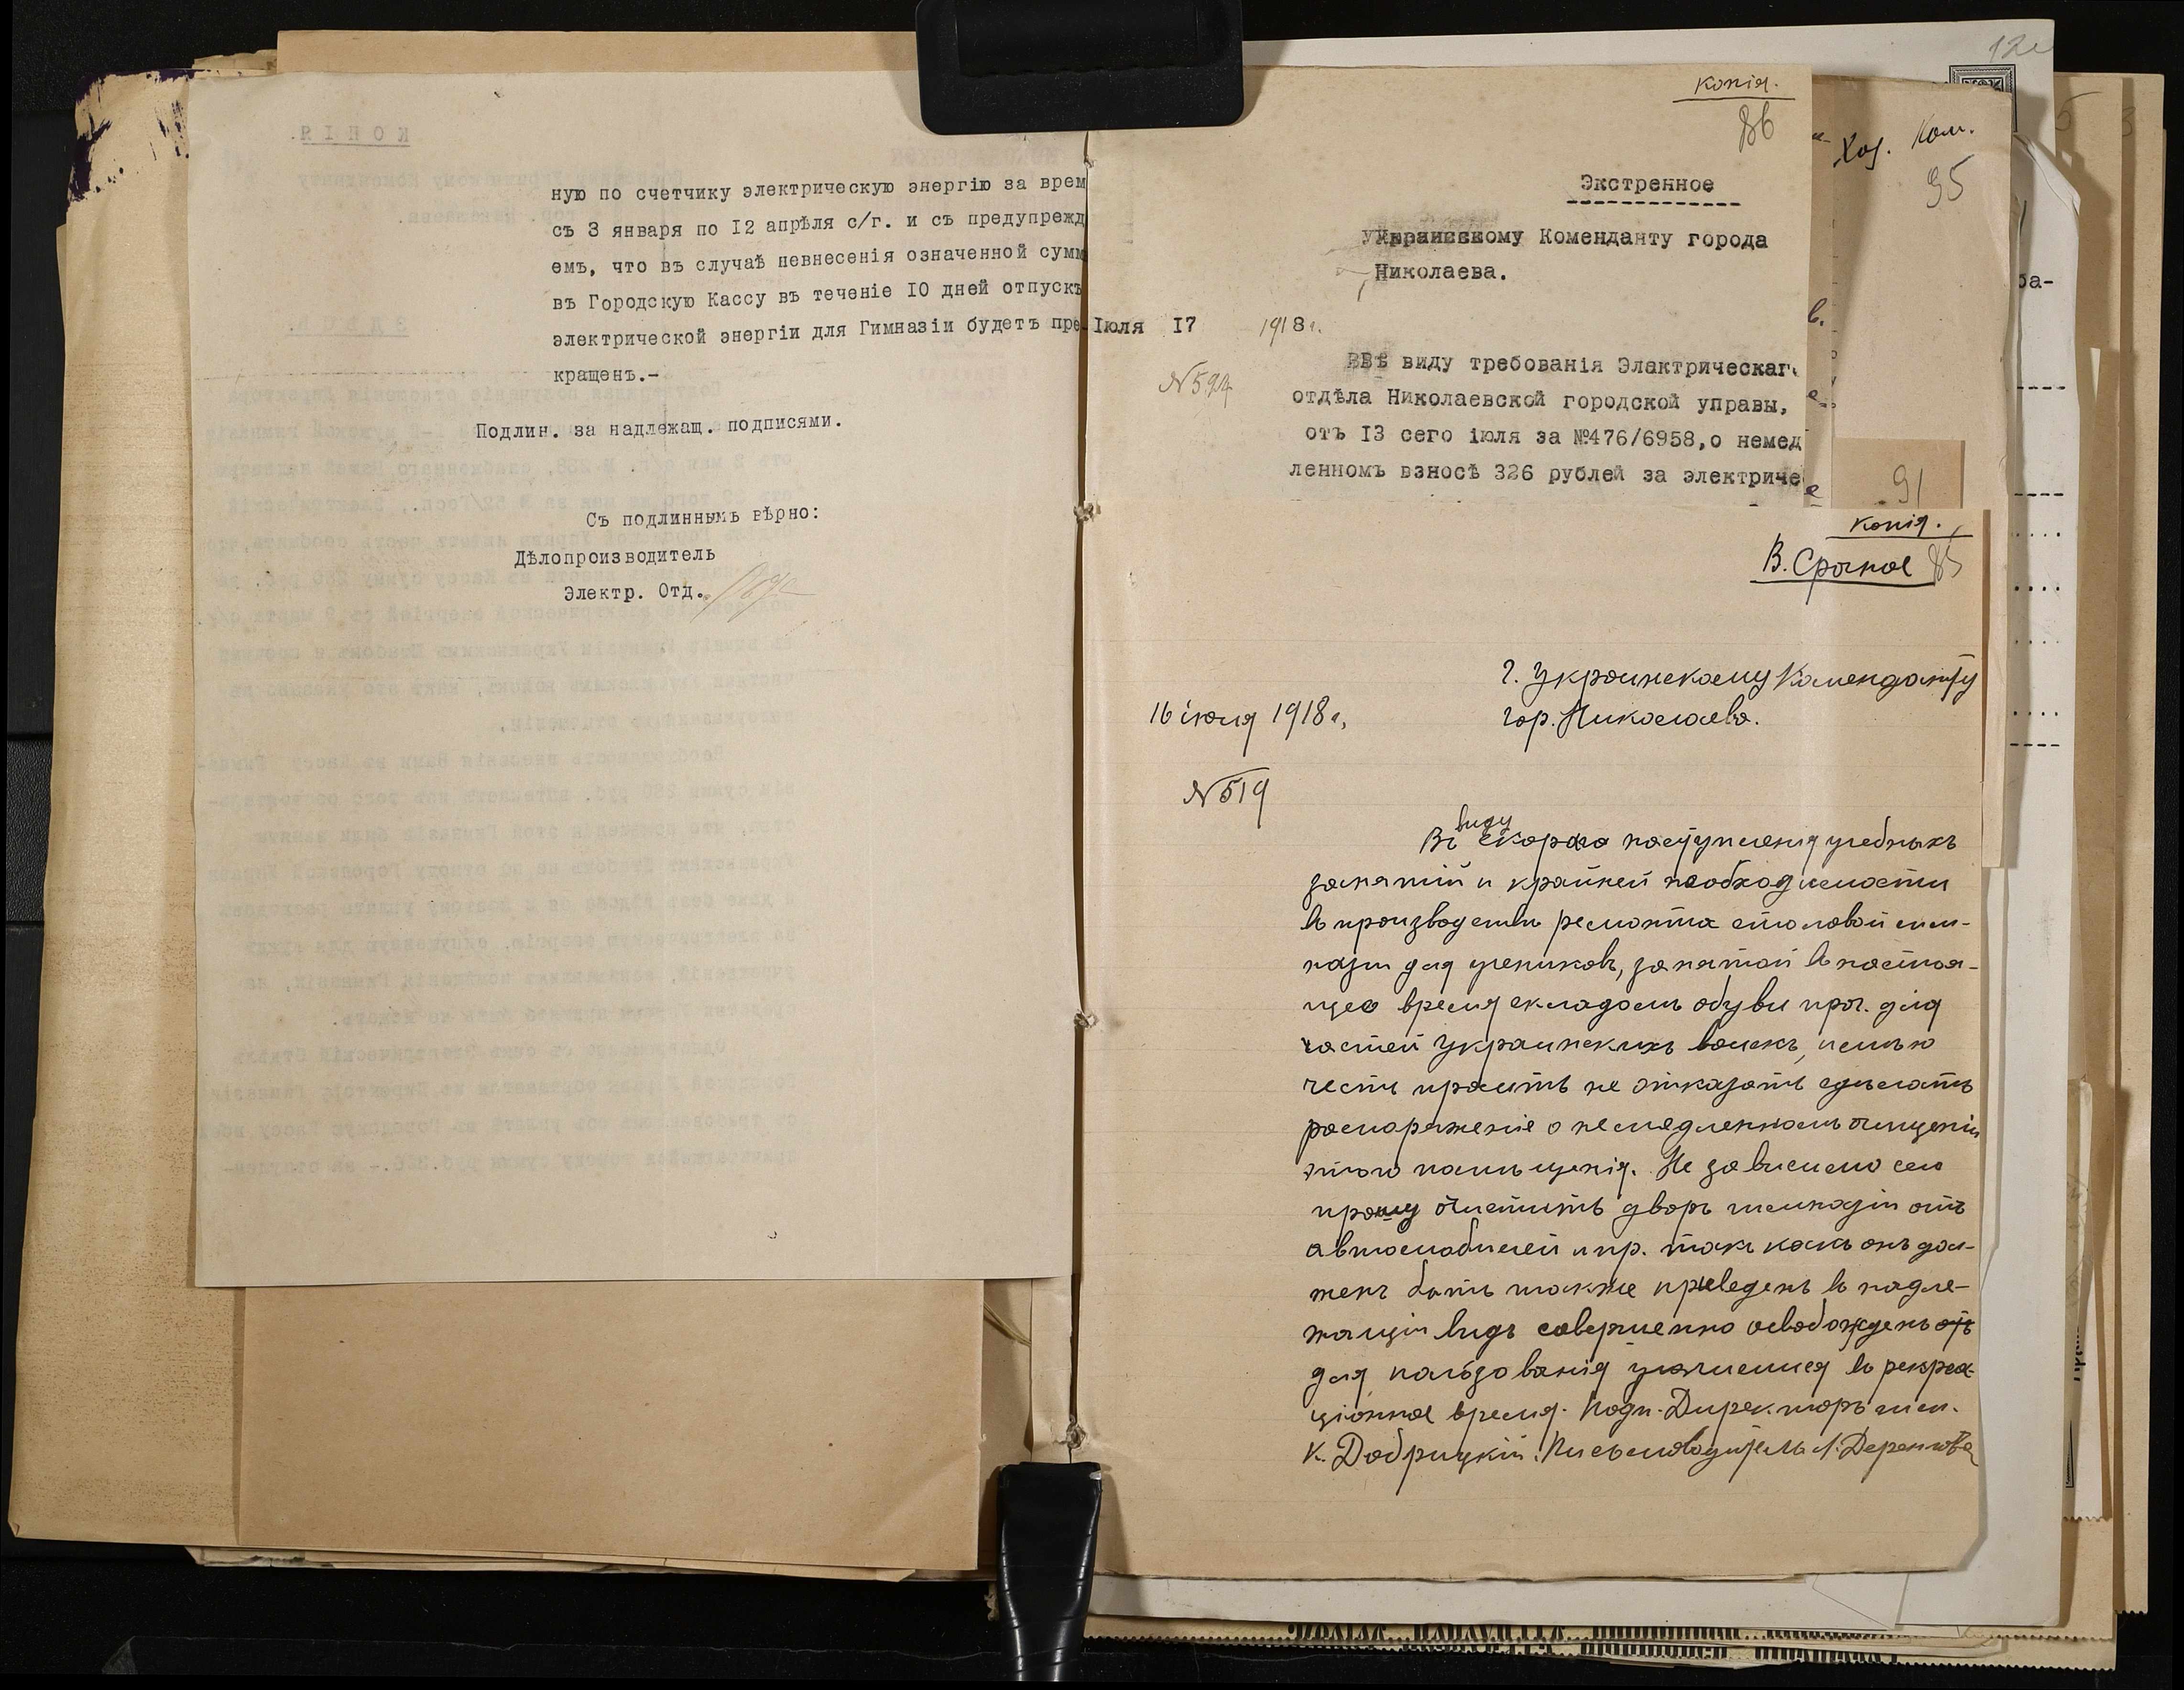 ную по счетчику электрическую энергію за врем
съ 3 января по 12 апрѣля с/г. и съ предупрежд
емъ, что въ случаѣ невнесенія означенной сумм
въ Городскую Кассу въ теченіе 10 дней отпускъ
электрической энергіи для Гимназіи будетъ пре
кращенъ.-
Подлин. за надлежащ. подписями.
Съ подлиннымъ вѣрно:
Дѣлопроизводитель
Электр. Отд.
копія.
86
Экстренное
Украинскому Коменданту города
Николаева.
Іюля 17 1918 г.
№ 524
ВВъ виду требованія Электрическаг
отдѣла Николаевской городской управы,
отъ 13 сего іюля за №476/6958,о немед
ленномъ взносѣ 326 рублей за электриче
Хоз. Ком.
95
91
копія.
В. Срочное 85
Г. Украинскому Коменданту
гор. Николаева.
16 іюля 1918 г,
№ 519
Въ виду скораго наступленія учебныхъ
занятій и крайней необходимости
въ производствѣ ремонта столовой гим-
назіи для учениковъ, занятой въ настоя-
щее время складомъ обуви проч. для
частей Украинскихъ войскъ, имѣю
честь просить не отказать сдѣлать
распоряженіе о немедленномъ очищеніи
этого помѣщенія. Не зависимо сего
прошу очистить дворъ гимназіи отъ
автомобилей и пр. такъ какъ онъ дол-
женъ быть также приведенъ въ надле-
жащій видъ совершенно освобожденъ отъ
для пользованія учащимися въ рекреа-
ціонное время. Подп. Директоръ гим.
К. Добрицкій. Письмоводитель